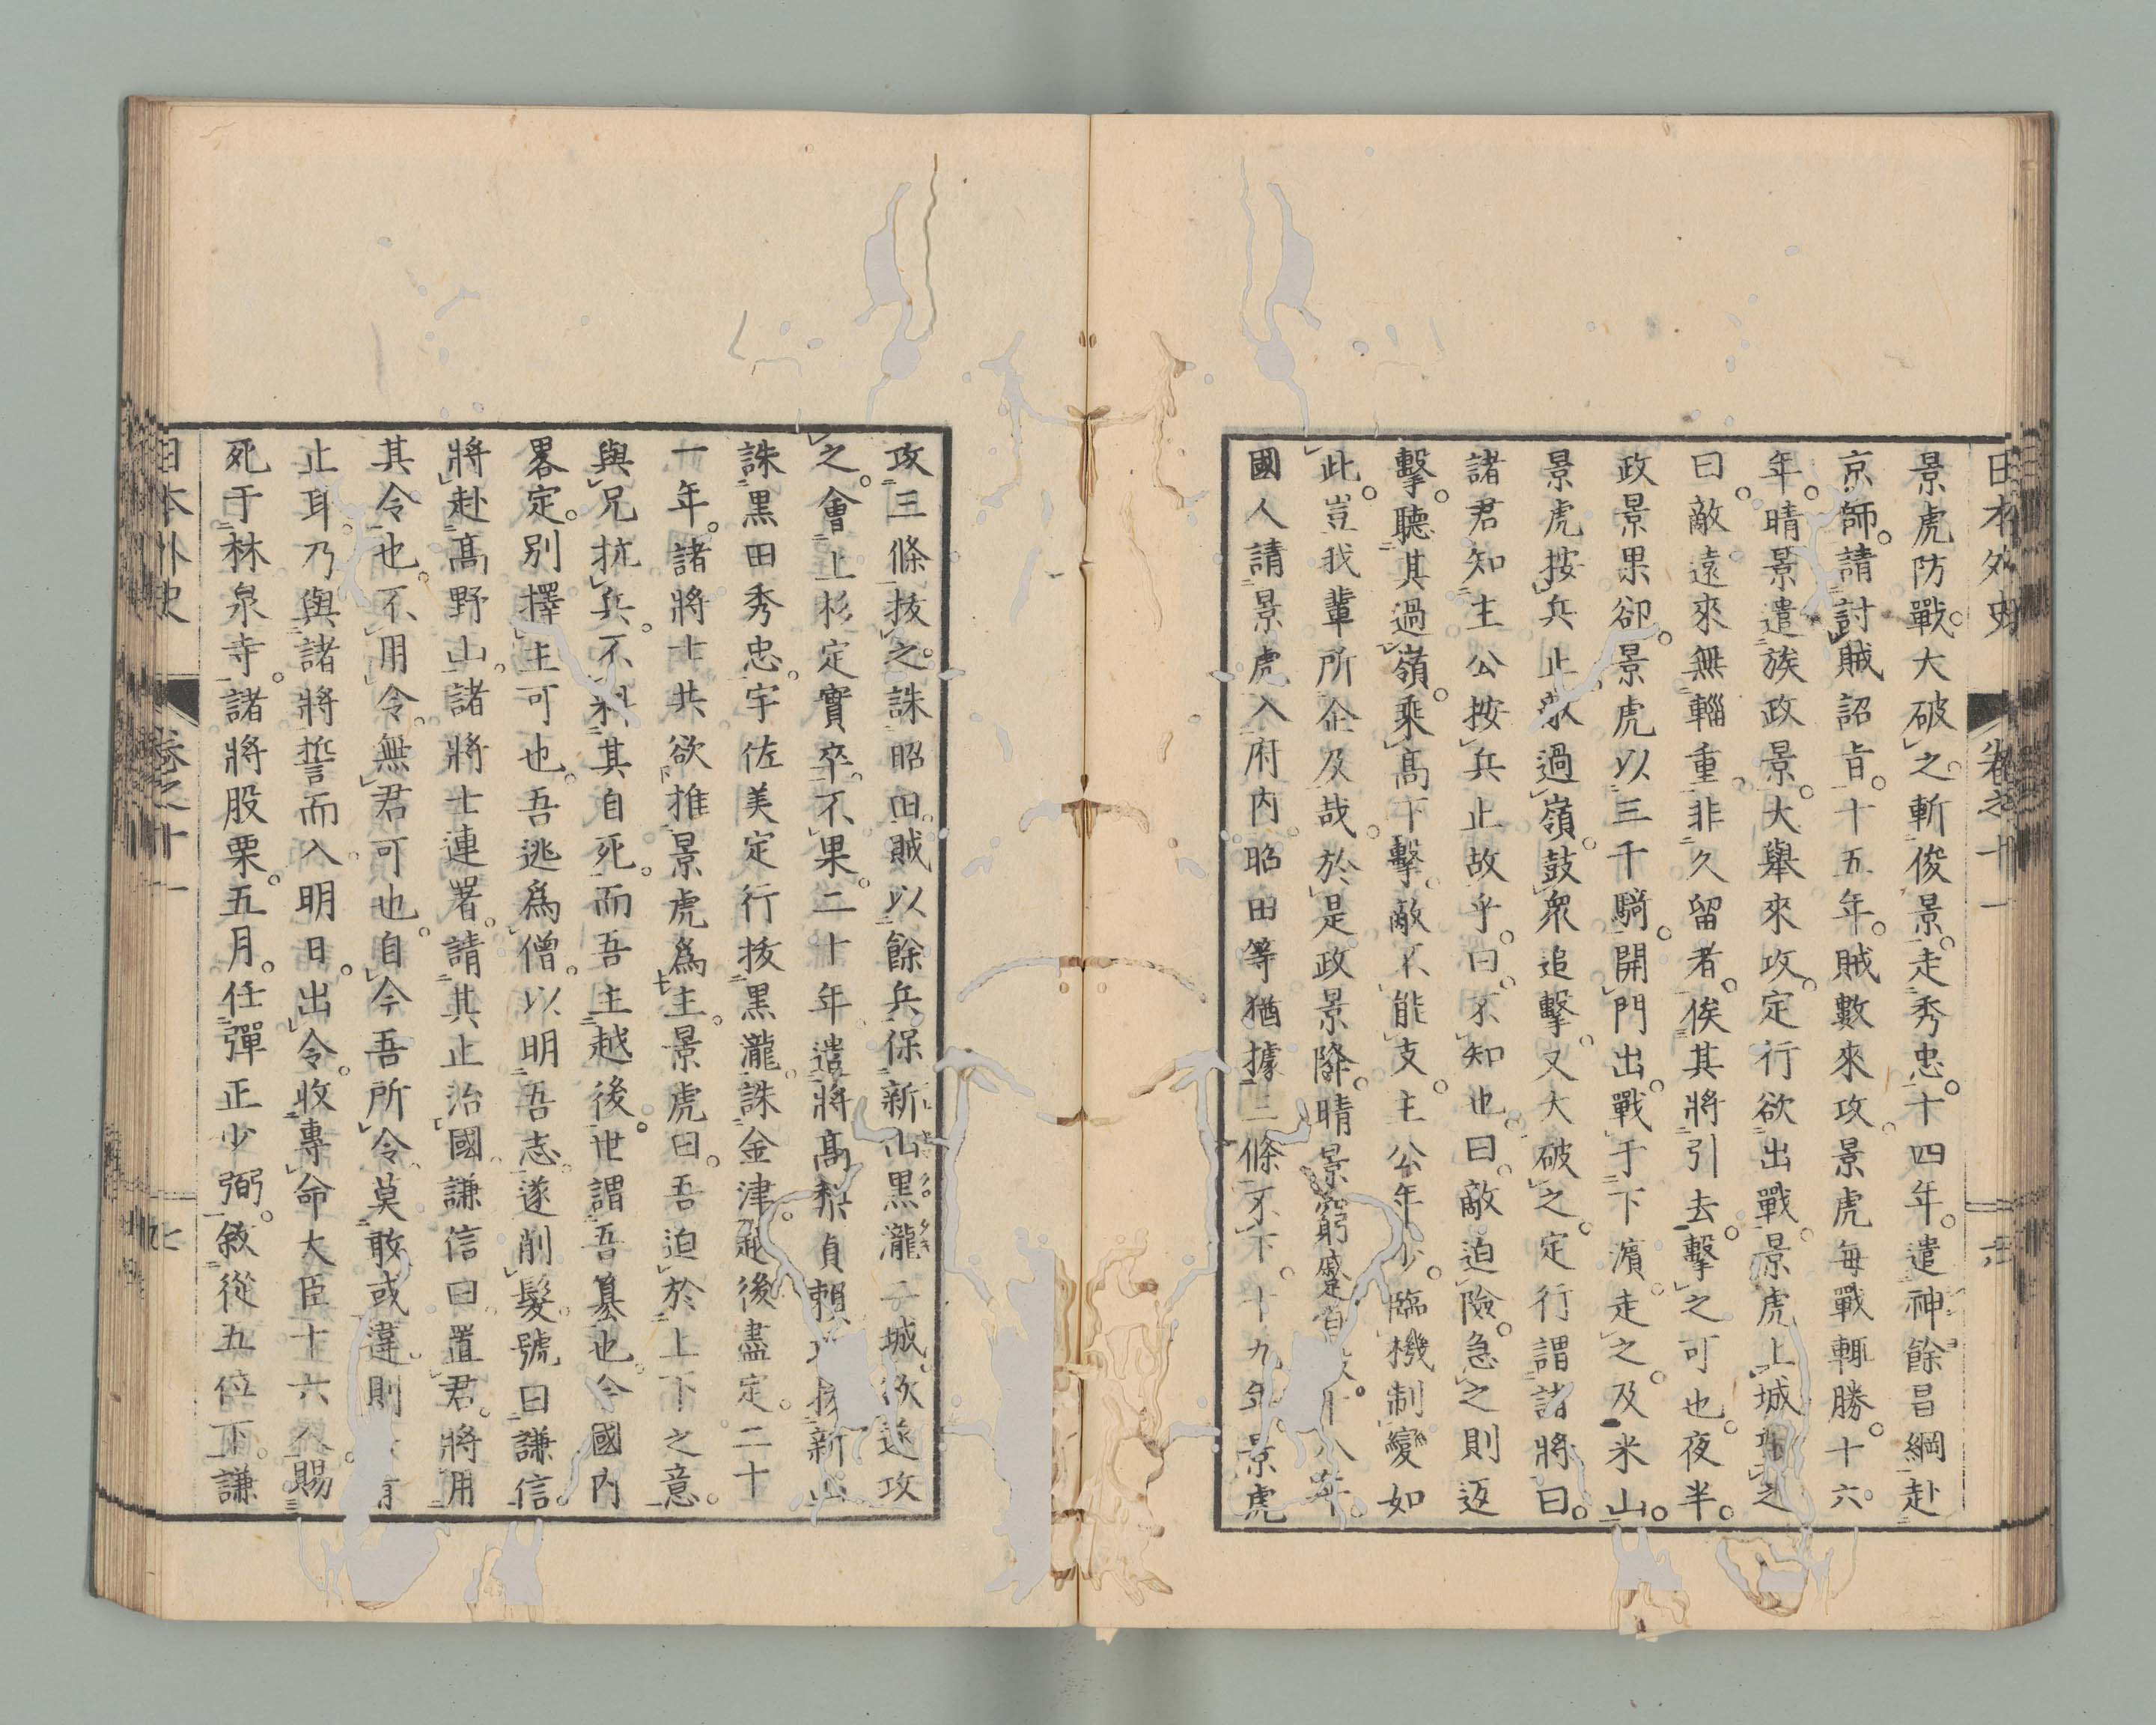 日本外史 卷之十一 六
景虎防戰。大破之。斬俊景。走秀忠。十四年。遣神餘昌綱赴
京師。請討賊。詔旨。十五年。賊數來攻。景虎每戰輙勝。十六
年。晴景遣族政景。大舉來攻。定行欲出戰。景虎上城望之
曰。敵遠來無輜重。非久留者。俟其將引去。擊之可也。夜半。
政景果卻。景虎以三千騎。開門出戰。于下濵走之。及米山。
景虎按兵止。敵過嶺。鼓衆追擊。又大破之。定行謂諸將曰。
諸君知主公按兵止故乎。曰。不知也。曰。敵迫險。急之則返
擊。聽其過嶺。乘高下擊。敵不能支。主公年少。臨機制變如
此。豈我輩所企及哉。於是政景降。晴景窮蹙自殺。十八年。
國人請景虎入府内。昭田等猶據三條。不下。十九年。景虎
攻三條。拔之。誅昭田。賊以餘兵保新山黒瀧二城。欲遂攻
之。會上杉定實卒。不果。二十年。遣將高梨貞賴 拔新山
誅黒田秀忠。宇佐美定行拔黒瀧。誅金津。越後盡定。二十
一年。諸將士共欲推景虎爲主。景虎曰。吾迫於上下之意。
與兄抗兵。不料其自死。而吾主越後。世謂吾簒也。今國内
畧定。別擇主可也。吾逃爲僧。以明吾志。遂削髮。號曰謙信。
將赴高野山。諸將士連署。請其止治國。謙信曰。置君。將用
其令也。不用令。無君可也。自今吾所令。莫敢或違則 有
止耳。乃與諸將誓而入。明日。出令。收專命大臣十六人。賜
死于林泉寺。諸將股栗。五月。任彈正少弼。敘從五位下。謙
日本外史 卷之十一 七